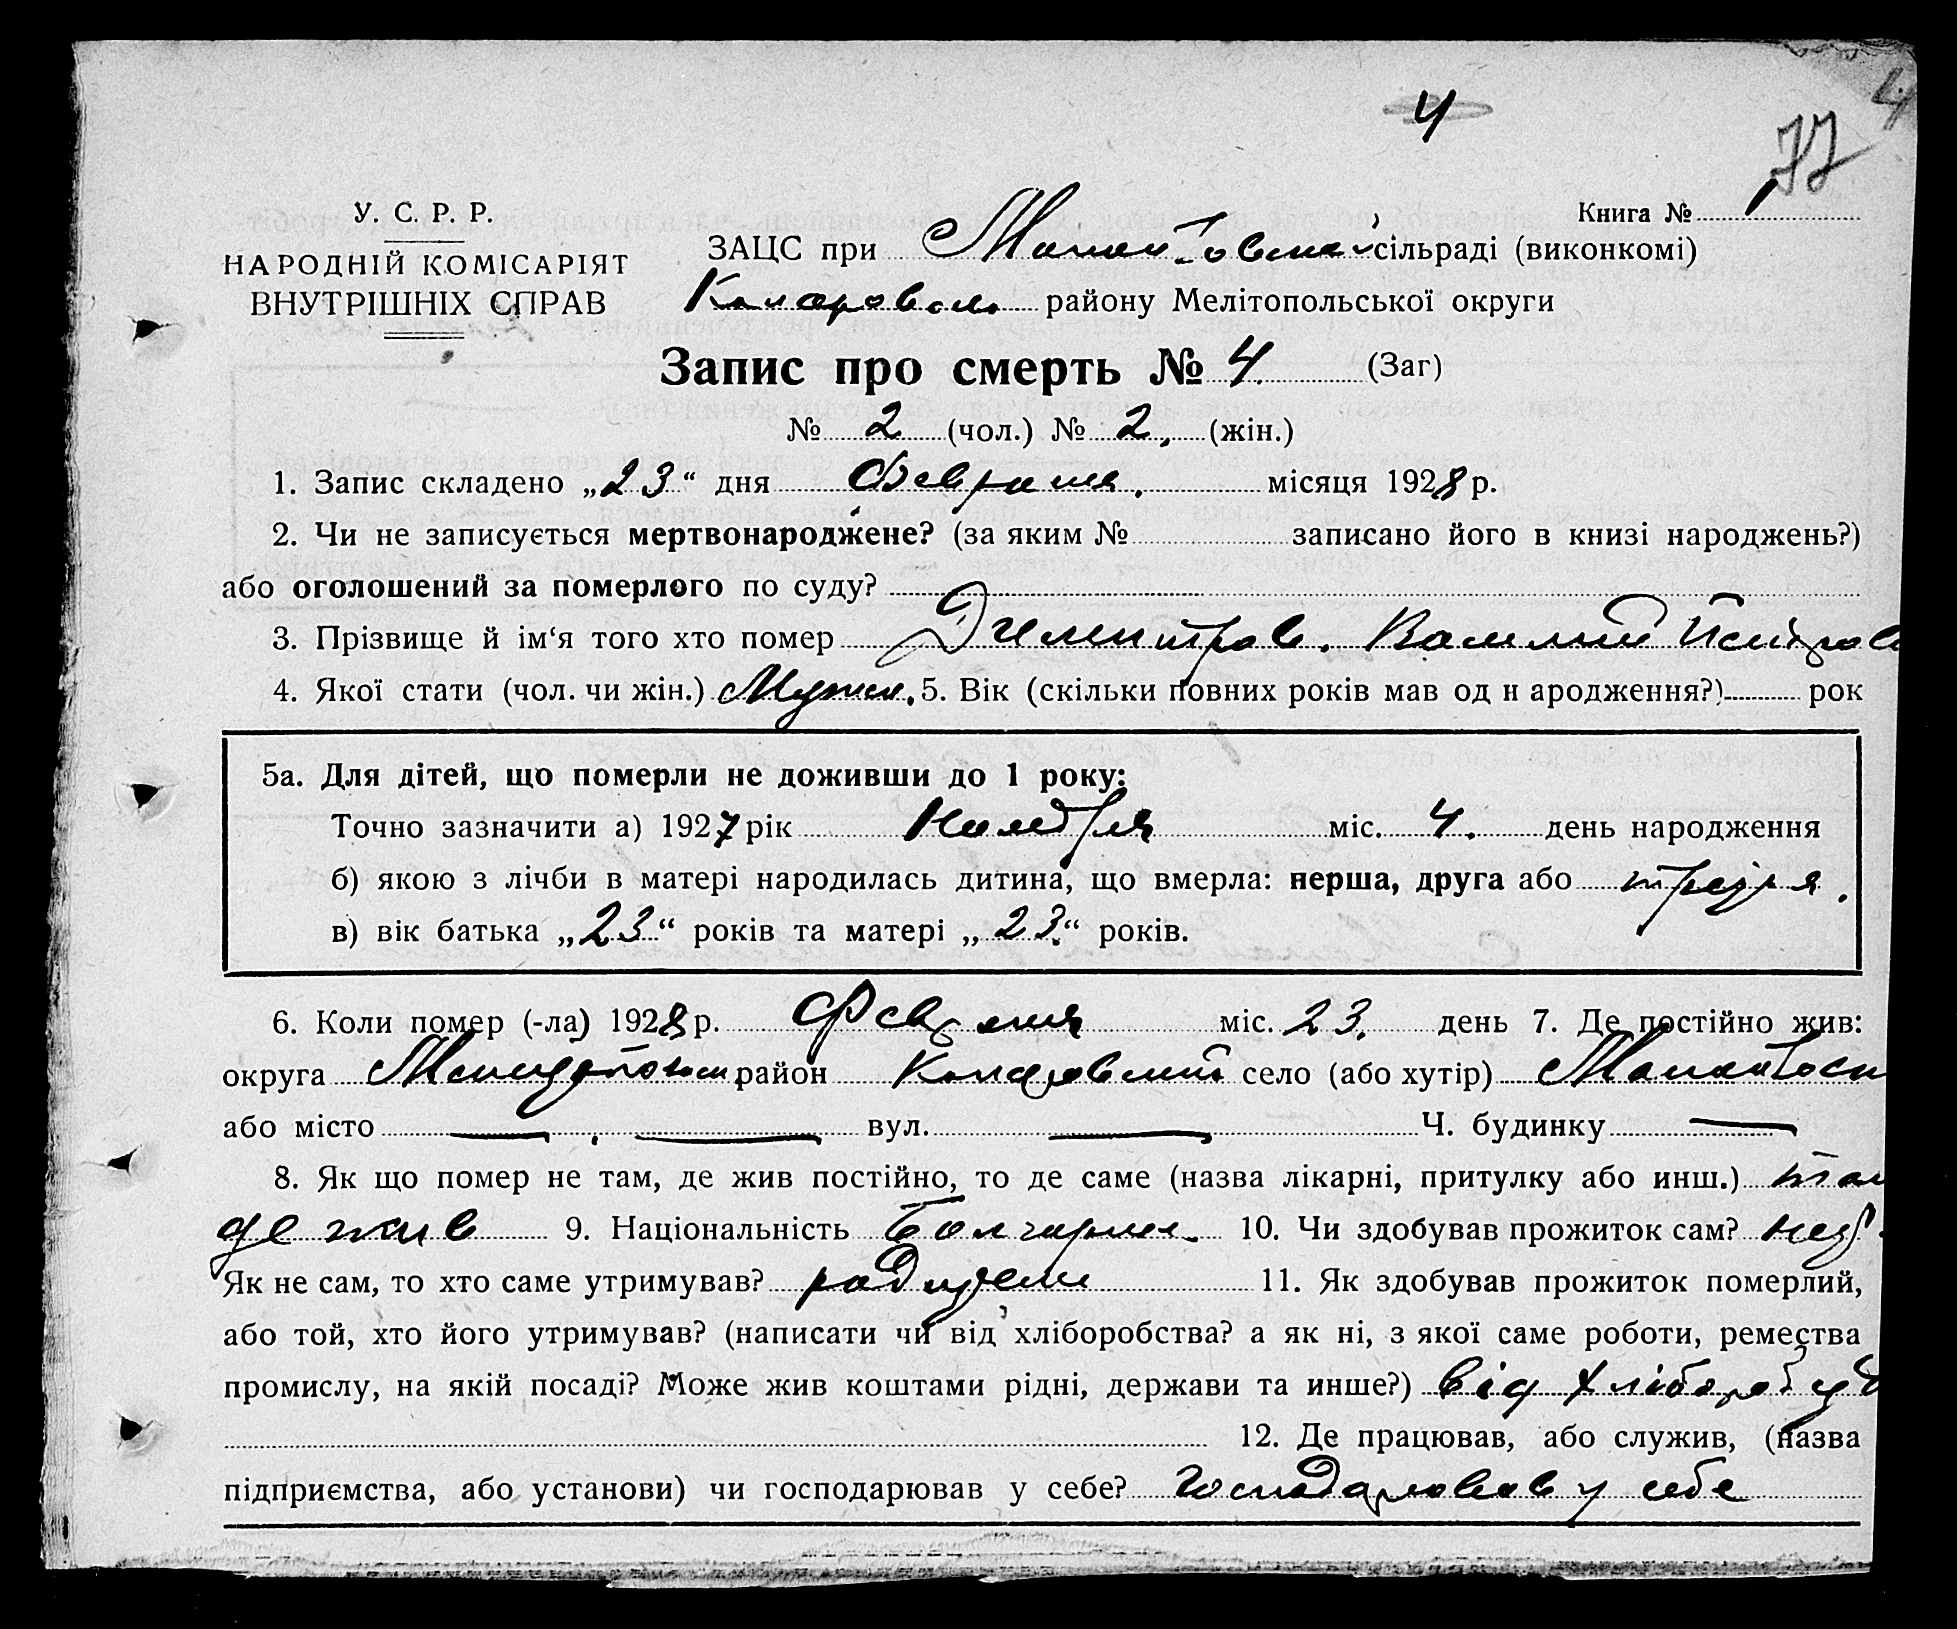 4
4
77
У. С. Р. Р.
Книга № 1
НАРОДНІЙ КОМІСАРІЯТ
ВНУТРІШНІХ СПРАВ
ЗАЦС при сільраді (виконкомі)
району Мелітопольської округи
Запис про смерть № 4. (Заг)
№ 2 (чол.) № 2. (жін.)
1. Запис складено „23“ дня Февраля. місяця 1928 р.
2. Чи не записується мертвонароджене? (за яким № записано його в книзі народжень?)
або оголошений за померлого по суду?
3. Прізвище й ім‘я того хто помер Димитров. Василий Петров
4. Якої стати (чол. чи жін.) Мужск. 5. Вік (скільки повних років мав од н ародження?) рок
5а. Для дітей, що померли не доживши до 1 року:
Точно зазначити а) 1927 рік Ноября міс. 4. день народження
б) якою з лічби в матері народилась дитина, що вмерла: перша, друга або
в) вік батька „23“ років та матері „23.“ років.
6. Коли помер (-ла) 1928 р. Февраля міс. 23. день 7. Де постійно жив:
округа район село (або хутір)
або місто — . — вул. — Ч. будинку —
8. Як що помер не там, де жив постійно, то де саме (назва лікарні, притулку або инш.) там
де жив 9. Національність 10. Чи здобував прожиток сам?
Як не сам, то хто саме утримував? родители 11. Як здобував прожиток померлий,
або той, хто його утримував? (написати чи від хліборобства? а як ні, з якої саме роботи, ремества
промислу, на якій посаді? Може жив коштами рідні, держави та инше?) від
12. Де працював, або служив, (назва
підприємства, або установи) чи господарював у себе? Господарював у себе